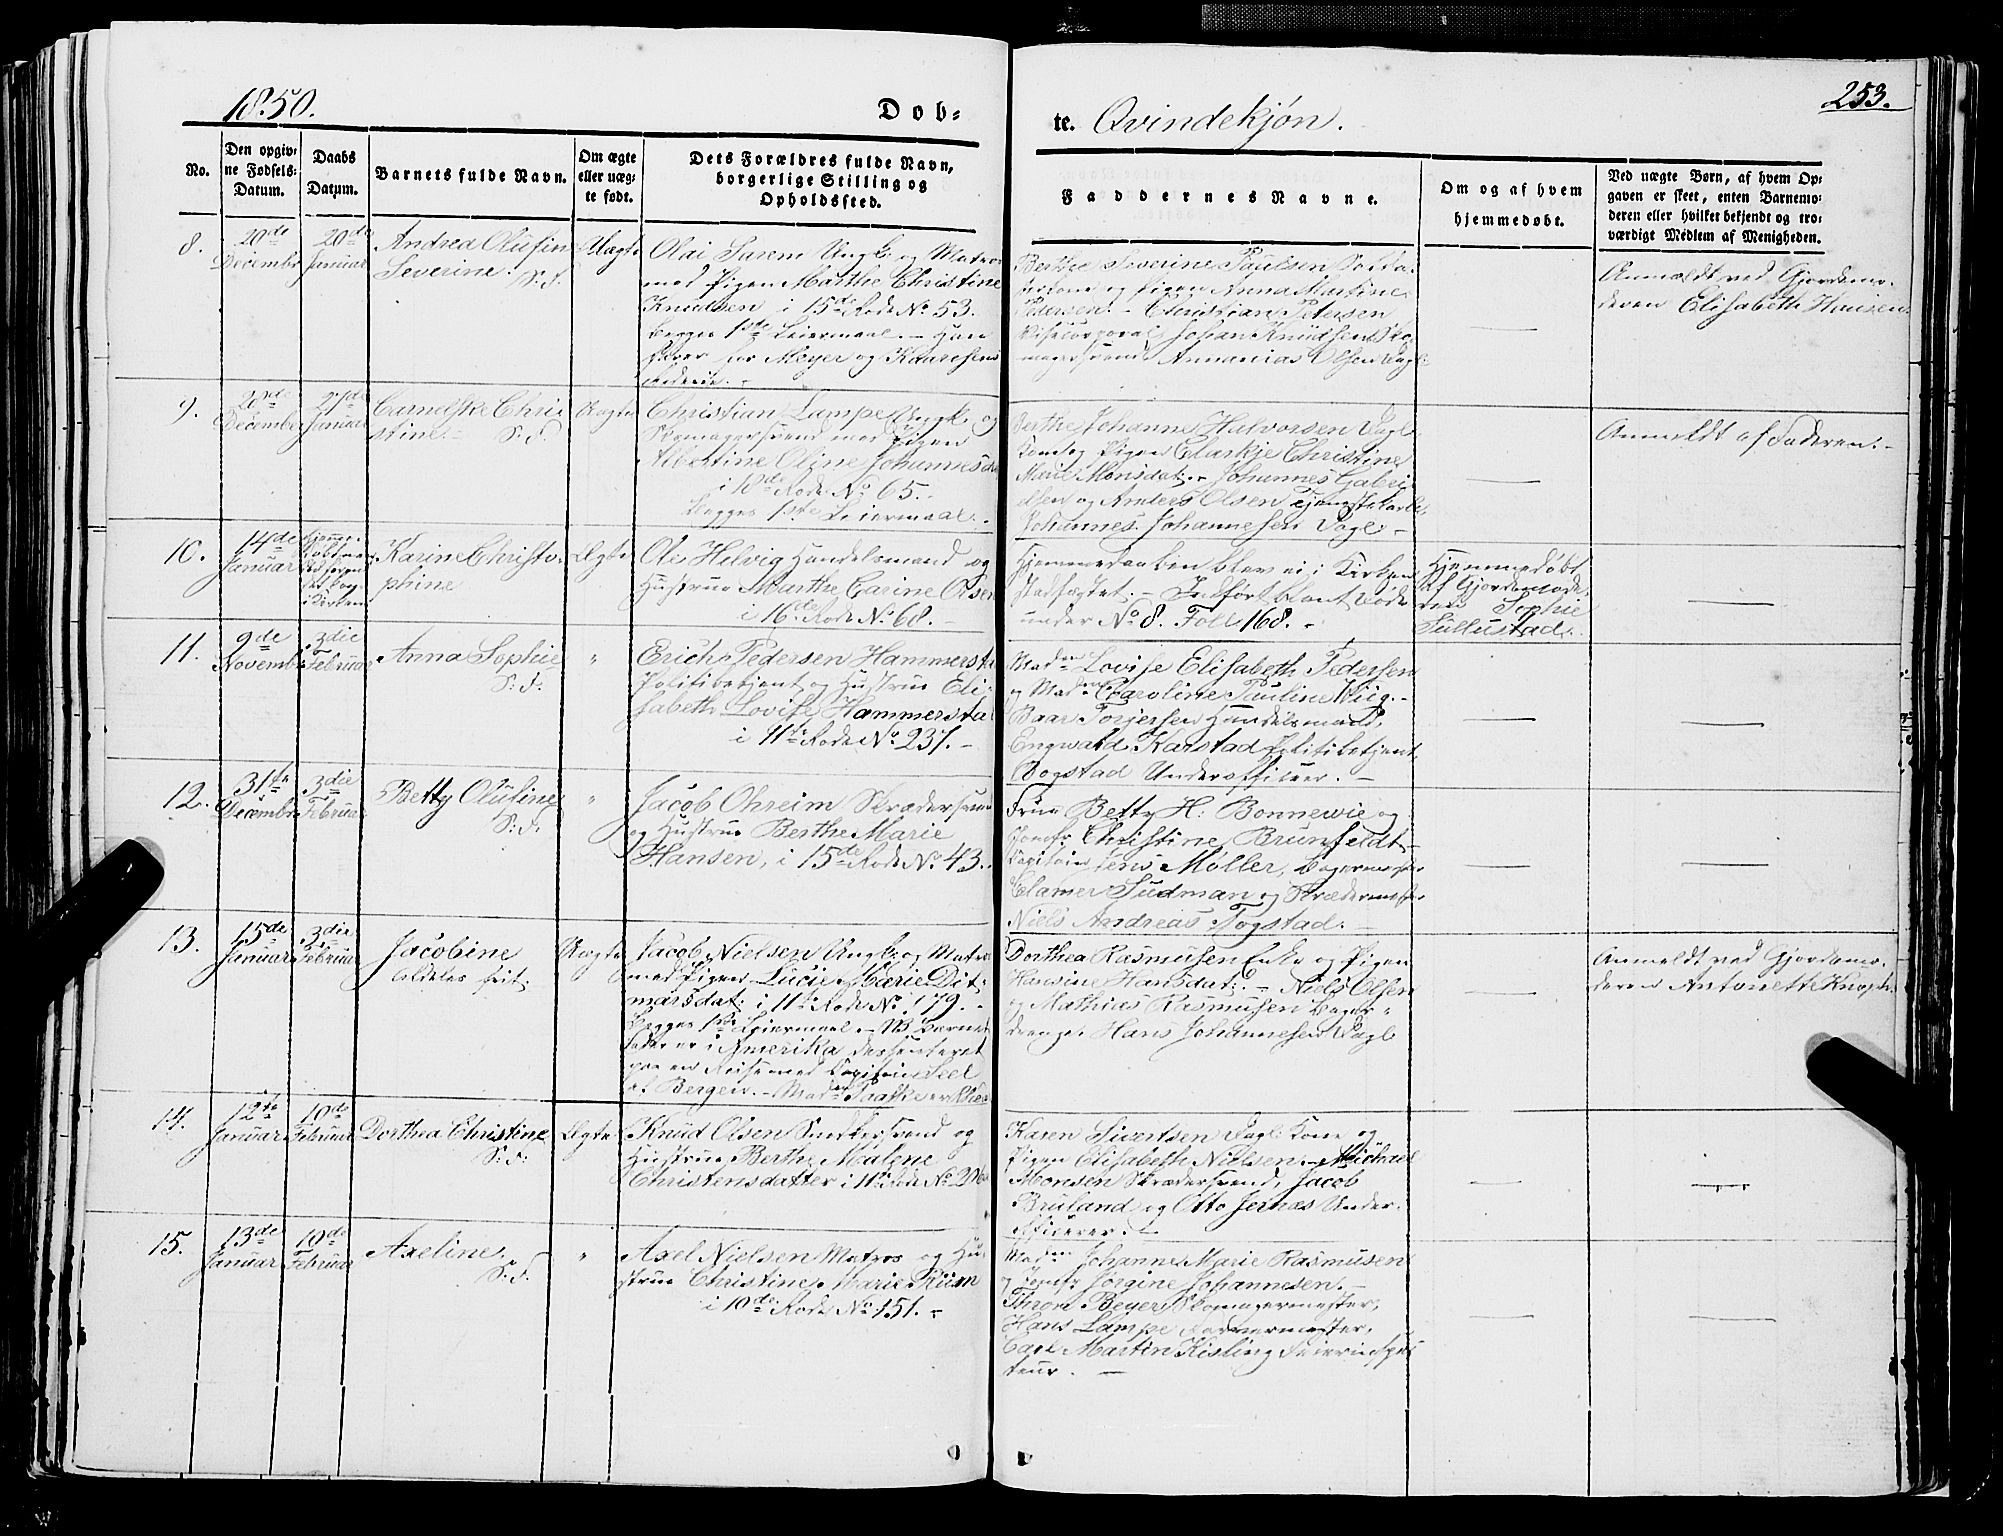 1850.
Dob-
te. Qvindekjøn.
253.
No.
Den opgiv-
ne Fødsels-
Datum.
Daabs
Datum.
Barnets fulde Navn.
Om ægte
eller uæg-
te født.
Dets Forældres fulde Navn,
borgerlige Stilling og
Opholdssted.
Faddernes Navne.
Om og af hvem
hjemmedøbt.
Ved uægte Børn, af hvem Op-
gaven er skeet, enten Barnemo-
deren eller hvilket bekjendt og tro-
værdigt Medlem af Menigheden.
8.
20de
Decembr
20de
Januar
Andrea Olufine
Severine. S: f.
Uægte
Olai Sarem Ungk: og Matros
med Pigen Marthe Christine
Knudsen i 15de Rode No 53.
begges 1ste Leiermaal. - Han
farer for Meyer og Kaaresens
Berthe Severine Paulsen
og Pigen Anna Martine
Pedersen. - Christian Petersen
Johan Knudsen Sko-
magersvend Annanias Olsen Dagl
Anmeldt ved Gjordemo-
deren Elisabeth Hansen.
9.
Decembr
27de
Januar
Carnelske Chri
stine. S: f.
Uægte
Christian Lampe Ungk. og
Skomagersvend med Pigen
Albertine Oline Johannesdr
i 18de Rode No 65.
Begges 1ste Leiermaal. -
Berthe Johanne Halvorsen Dagl
Kone og Pigen Clarkje Christine
Marie Monsdat. - Johannes Gabri
elsen og Anders Olsen Tjenestekarle
Johannes Johannesen Dagl: -
Anmeldt af Faderen. -
10.
14de
Januar
Karine Christo-
phine
Ægte
Ole Helvig Handelsmand og
Hustrue Marthe Carine Olsen
i 16de Rode No 68. -
Hjemmedaaben blev ei i Kirken
stadfæstet. - Indført blant Døde
under No 8. Foll 168. -
Hjemmedøbt
af Gjordemode-
ren Sophie
Sullustad.
11.
9de
Novembr
3die
Februar
Anna Sophie
S: f.
"
Erich Pedersen Hammersta
Politibetjent og Hustrue Eli-
sabeth Lovise Hammersta
i 11te Rode No 237. -
Madm Lovise Elisabeth Pedersen
og Madm Caroline Pauline Wiig. -
Baar Torjersen Handelsmand,
Engwald Karstad Politibetjent,
Bogstad Underofficeer. -
12.
31te
Decembr
3die
Februar
Betty Olufine
S: f.
"
Jacob Ohreim Skrædersvend
og Hustrue Berthe Marie
Hansen, i 15de Rode No 43.
Frue Betty H. Bonnewie og
Jomfr. Christine Brunfeldt -
Capitain Jens Møller, Bagermester
Clamer Sudman og Skrædermester
Niels Andreas Togstad. -
13.
15de
Januar
3die
Februar
Jacobine
Uægte
Jacob Nielsen Ungk: og Matros
med Pigen Lucie Marie Dit-
marsdat. i 11te Rode No 179. -
Begges 1ste Leiermaal. - NB Barnets
Fader er i Amerika desserteret
paa en Reise med Capitain
af Bergen. -
Dorthea Rasmusen Enke og Pigen
Hansine Hansdat: - Niels Olsen
og Mathias Rasmusen Bager-
drenge. Hans Johannesen Dagl
Anmeldt ved Gjordemo-
deren Antonette Knoph.
14.
12te
Januar
10de
Februar
Dorthea Christine
S: f.
Ægte
Knud Olsen Snedkersvend og
Hustrue Berthe Malene
Christensdatter i 11te Rode No
Karen Sivertsen Dagl: Kone og
Pigen Elisabeth Nielsen. - Michael
Monsen Skrædersvend, Jacob
Bruland og Otto Jernæs Under-
officerer. -
15.
13de
Januar
10de
Februar
Axeline.
S: f.
"
Axel Nielsen Matros og Hu-
strue Christine Marie Krüm
i 10de Rode No 151. -
Madm Johanne Marie Rasmusen
og Jomfr. Jørgine Johannesen. -
Thron Beyer Skomagermester,
Hans Lampe Farvermester,
Carl Martin Kisling Feierinspec
teur. -